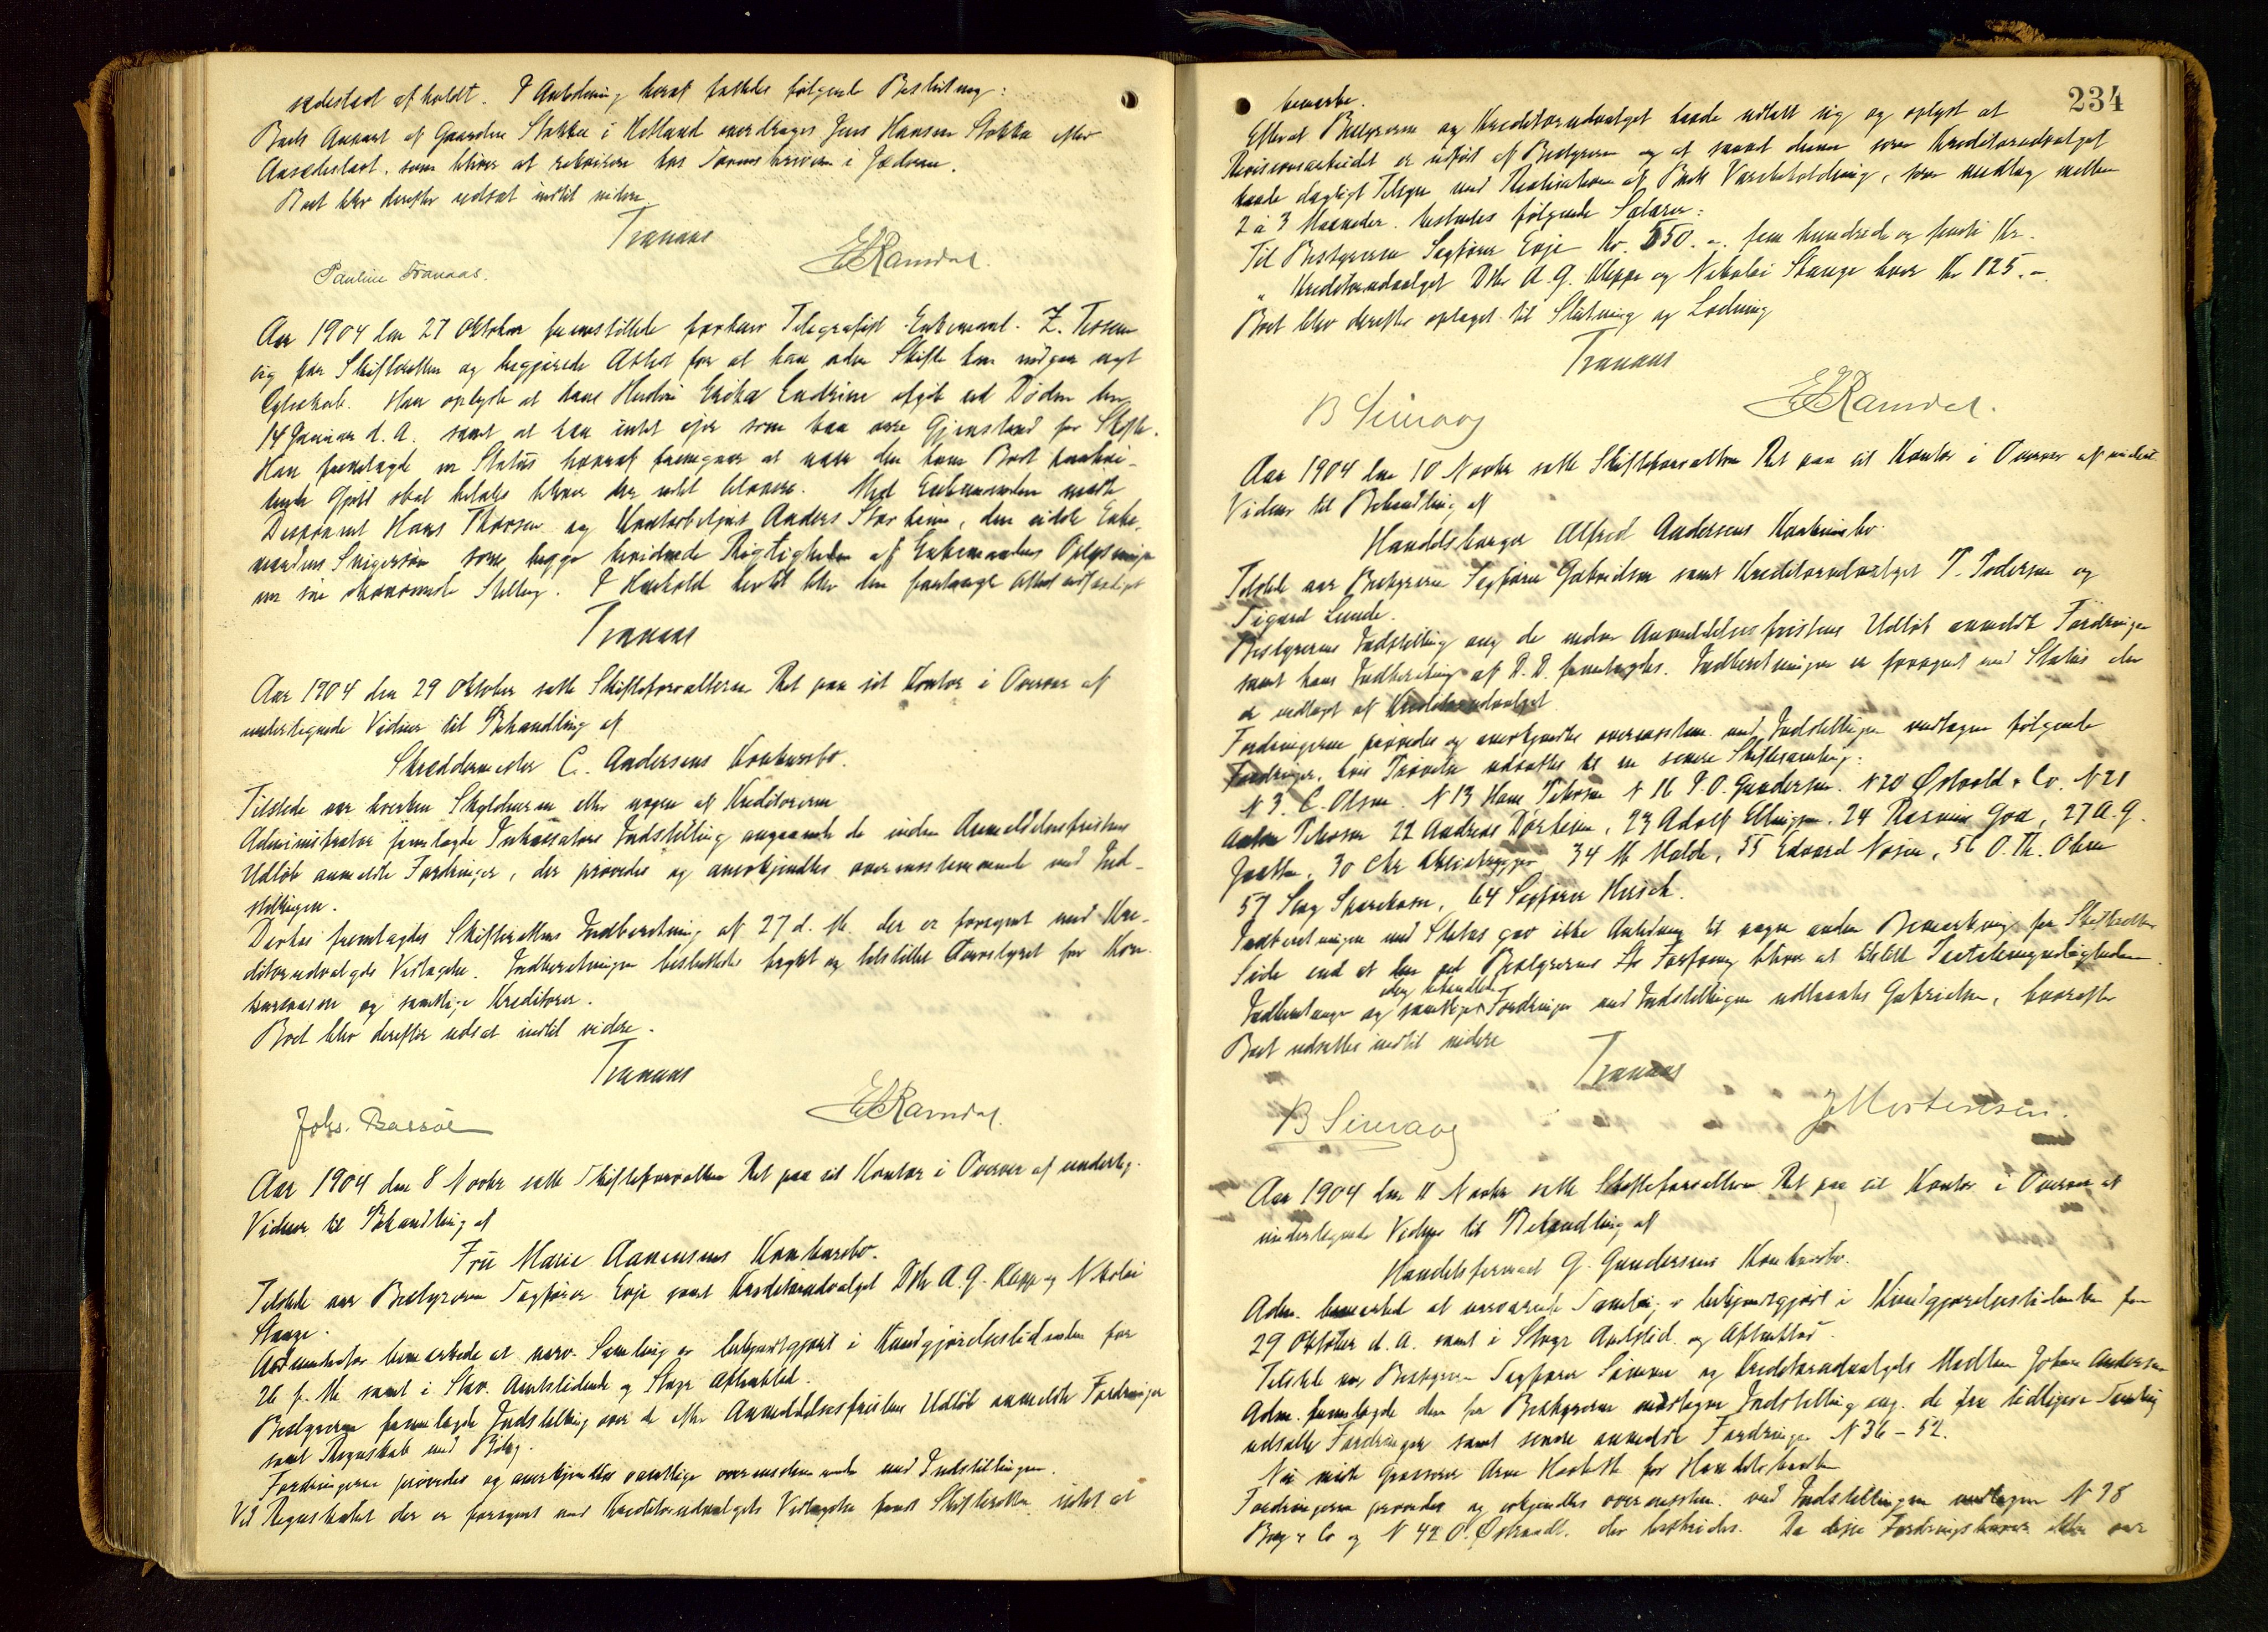 sædested afholdt. I Anledning heraf fattedes følgende Beslutning:
Boets Anpart af Gaarden Stokka i Hetland overdrages Jens Hansen Stokka efter
Aasædestaxt, som bliver at rekvirere hos Sorenskriveren i Jæderen.
Boet blev derefter udsat indtil videre.
Tranaas
Pauline Tranaas. ERamdal.
Aar 1904 den 27 Oktober fremstillede forhenv. Telegrafist Enkemand Z.
sig for Skifteretten og begjærede Attest for at han uden Skifte kan indgaa nyt
Egteskab. Han oplyste at hans Hustru Erika Endrine afgik ved Døden den
14 Januar d. A. samt at han intet ejer som kan være Gjenstand for Skifte.
Han fremlagde en Status hvoraf fremgaar at naar den hans Bo
Gjæld skal betales bliver der intet tilovers. Med Enkemanden mødte
Disponent Hans Thorsen og Anders Storheim, den sidste Enke-
mandens Svigersøn som begge bevidnede Rigtigheden af Enkemandens Oplysninger
om sin økonomiske Stilling. I Henhold hertil blev den forlangte Attest udfærdiget
Tranaas
Aar 1904 den 29 Oktober satte Skifteforvalteren Ret paa sit Kontor i Overvær af
undertegnede Vidner til Behandling af
Skreddermester C. Andersens Konkursbo.
Tilstede var hverken Skyldneren eller nogen af Kreditorerne
Administrator fremlagde Inkassators Indstilling angaaende de inden Anmeldelsesfristens
Udløb anmeldte Fordringer, der prøvedes og anerkjendtes overensstemmende med Ind-
stillingen.
Derhos fremlagdes Skifterettens Indberetning af 27 d. M. der er forsynet med Kre-
ditorudvalgets Vedtagelse. Indberetningen besluttedes trykt og tilstillet for Kon-
kursvæsen og samtlige Kreditorer.
Boet blev derefter udsat indtil videre.
Tranaas
Johs. ERamdal.
Aar 1904 den 8 Novbr satte Skifteforvalteren Ret paa sit Kontor i Overvær af underteg.
Vidner til Behandling af
Fru Marie Aanensens Konkursbo.
Tilstede var Bestyreren Sagfører Evje samt Kreditorudvalget DHr A. G. Klepp og Nikolai
Stange.
Administrator bemærkede at nærv. Samling er bekjendtgjort i Kundgjørelsestidenden for
26 f. M. samt i Stav. Amtstidende og Stvgr Aftenblad.
Bestyreren fremlagde Indstilling over de efter Anmeldelsesfristens Udløb anmeldte Fordringer
samt Regnskab med Bilag.
Fordringerne prøvedes og anerkjendtes samtlige overensstemmende med Indstillingen.
Ved Regnskabet der er forsynet med Kreditorudvalgets Vedtagelse fandt Skifteretten intet at
234
bemærke.
Efterat Bestyreren og Kreditorudvalget havde udtalt sig og oplyst at
Revisionsarbeidet er udført af Bestyreren og at saavel denne som Kreditorudvalget
havde dagligt Tilsyn med Realisationen af Boets Varebeholdning, som medtog mellem
2 à 3 Maaneder, besluttedes følgende Salærer:
Til Bestyreren Sagfører Evje Kr. 550.-. fem hundrede og femti Kr.
" Kreditorudvalget DHr A. G. Kleppe og Nikolai Stange hver Kr 125.-
Boet blev derefter optaget til Slutning og Lodning
Tranaas
B Simraag ERamdal.
Aar 1904 den 10 Novbr satte Skifteforvalteren Ret paa sit Kontor i Overvær af undert
Vidner til Behandling af
Handelsborger Alfred Andersens Konkursbo.
Tilstede var Bestyreren Sagfører Gabrielsen samt Kreditorudvalget P. Pedersen og
Sigurd Lunde.
Bestyrerens Indstilling ang de inden Anmeldelsesfristens Udløb anmeldte Fordringer
samt hans Indberetning af D. D. fremlagdes. Indberetningen er forsynet med Status der
er vedtaget af Kreditorudvalget.
Fordringerne prøvedes og anerkjendtes overensstem. med Indstillingen undtagen følgende
Fordringer, hvis Prøvelse udsattes til en senere Skiftesamling:
N 3. C. Olsen. N 13 Hans N 16 P. O. Gundersen. N 20 Østvold & Co. N 21
22 Andreas, 23 Adolf Ellingsen, 24 Rasmus Goa, 27 A. G.
30 Chr 34 M Molde, 55 Edvard, 56 O. Th. Olsen
57 Stvg Sparekasse, 64 Sagfører Hirsch.
Indberetningen med Status gav ikke Anledning til nogen anden Bemærkning fra Skifterettens
Side end at den ved Bestyrerens Forføining bliver at tilstille Paatalemyndigheden.
Indberetningen og samtlige idag behandlede Fordringer med Indstillingen udlaantes Gabrielsen, hvorefter
Boet udsattes indtil videre
Tranaas
B Simraag J Mortensen.
Aar 1904 den 11 Novbr satte Skifteforvalteren Ret paa sit Kontor i Overvær af
undertegnede Vidner til Behandling af
Handelsfirmaet G. Gundersens Konkursbo.
Adm. bemærked at nærværende Samling er bekjendtgjort i Kundgjørelsestidenden for
29 Oktober d. A. samt i Stvgr Amtstid. og Aftenblad.
Tilstede var Bestyreren Sagfører Sømme og Kreditorudvalgets Medlem Johan Andersen
Adm. fremlagde den for Bestyreren modtagne Indstilling ang. de fra tidligere Samling
udsatte Fordringer samt senere anmeldte Fordringer N 36 - 52.
Nu mødte Grosserer Arne for
Fordringerne prøvedes og godkjendtes overensstem. med Indstillingen undtagen N 38
Berg & Co og N 42 O., der bestrides. Da disse Fordringshavere ikke var